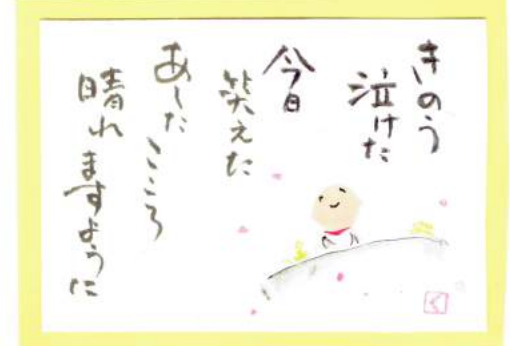 きのう
泣けた
今日
笑えた
あした こころ
晴れますように
く